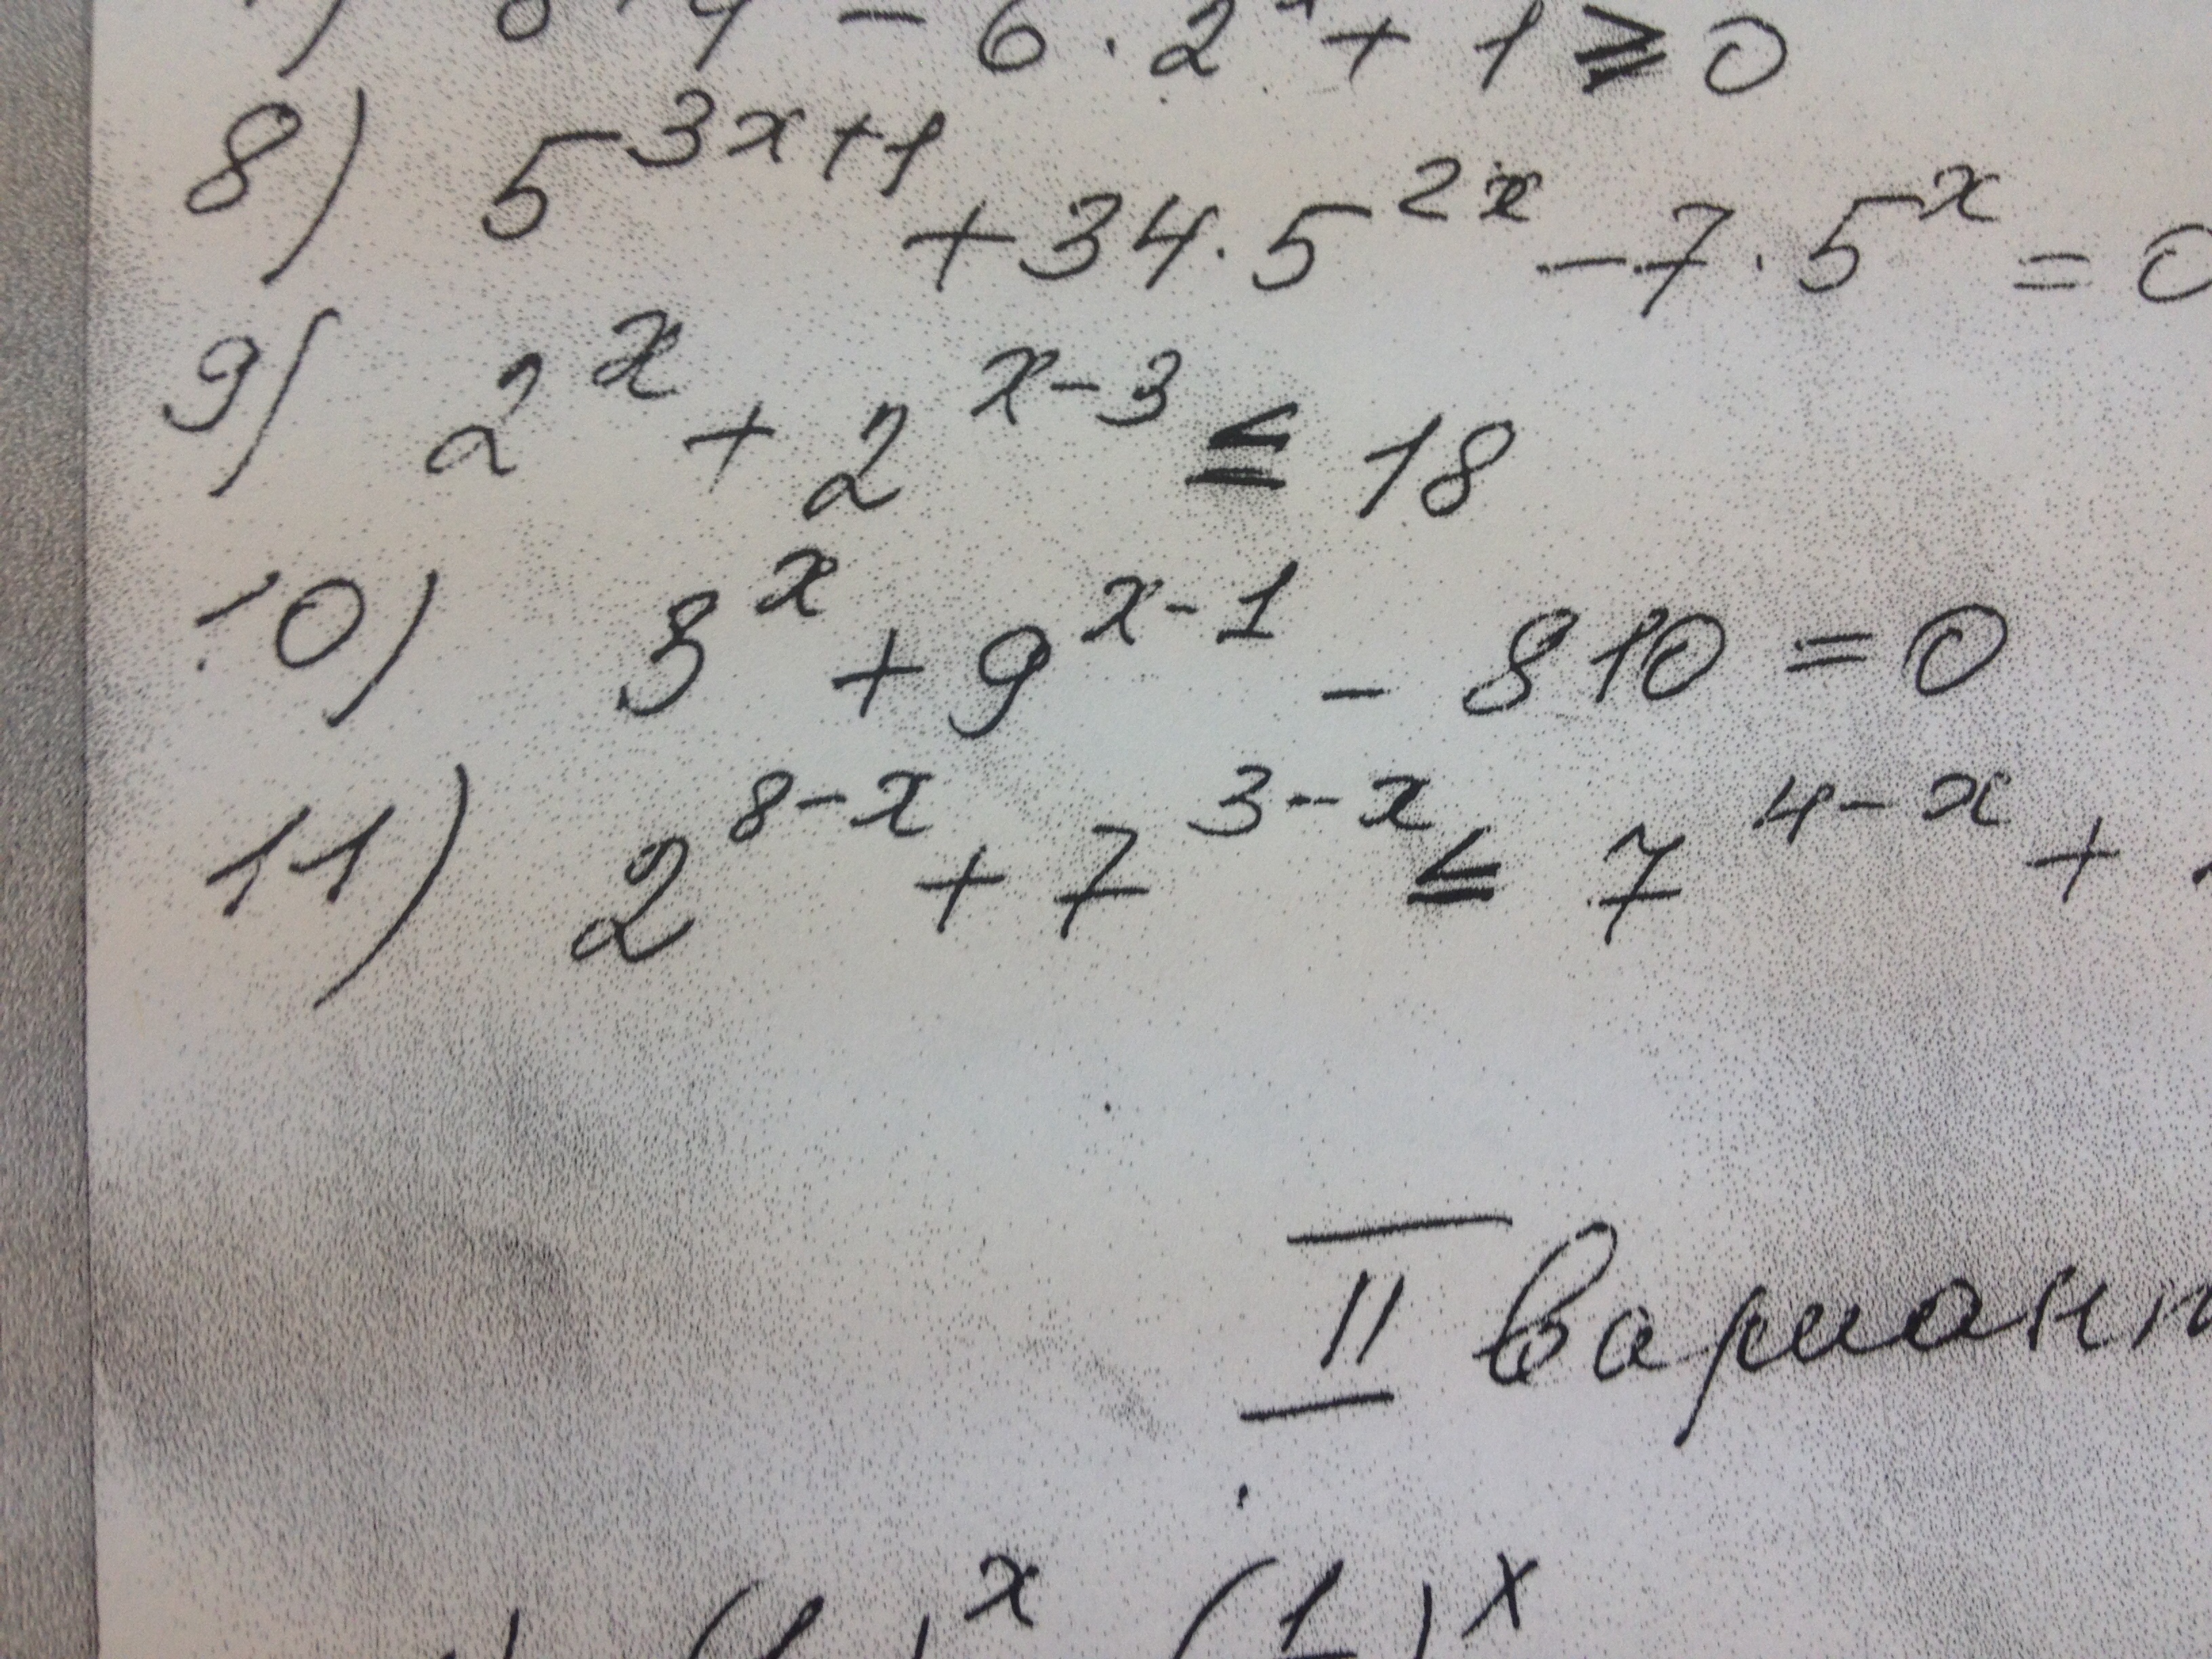 - 6 · 2ˣ + 1 ⩾ 0
8) 5³ˣ⁺¹ + 34 · 5²ˣ - 7 · 5ˣ = 0
9) 2ˣ + 2ˣ⁻³ ≤ 18
10) 3ˣ + 9ˣ⁻¹ - 810 = 0
11) 2⁸⁻ˣ + 7³⁻ˣ ≤ 7⁴⁻ˣ +
II вариант